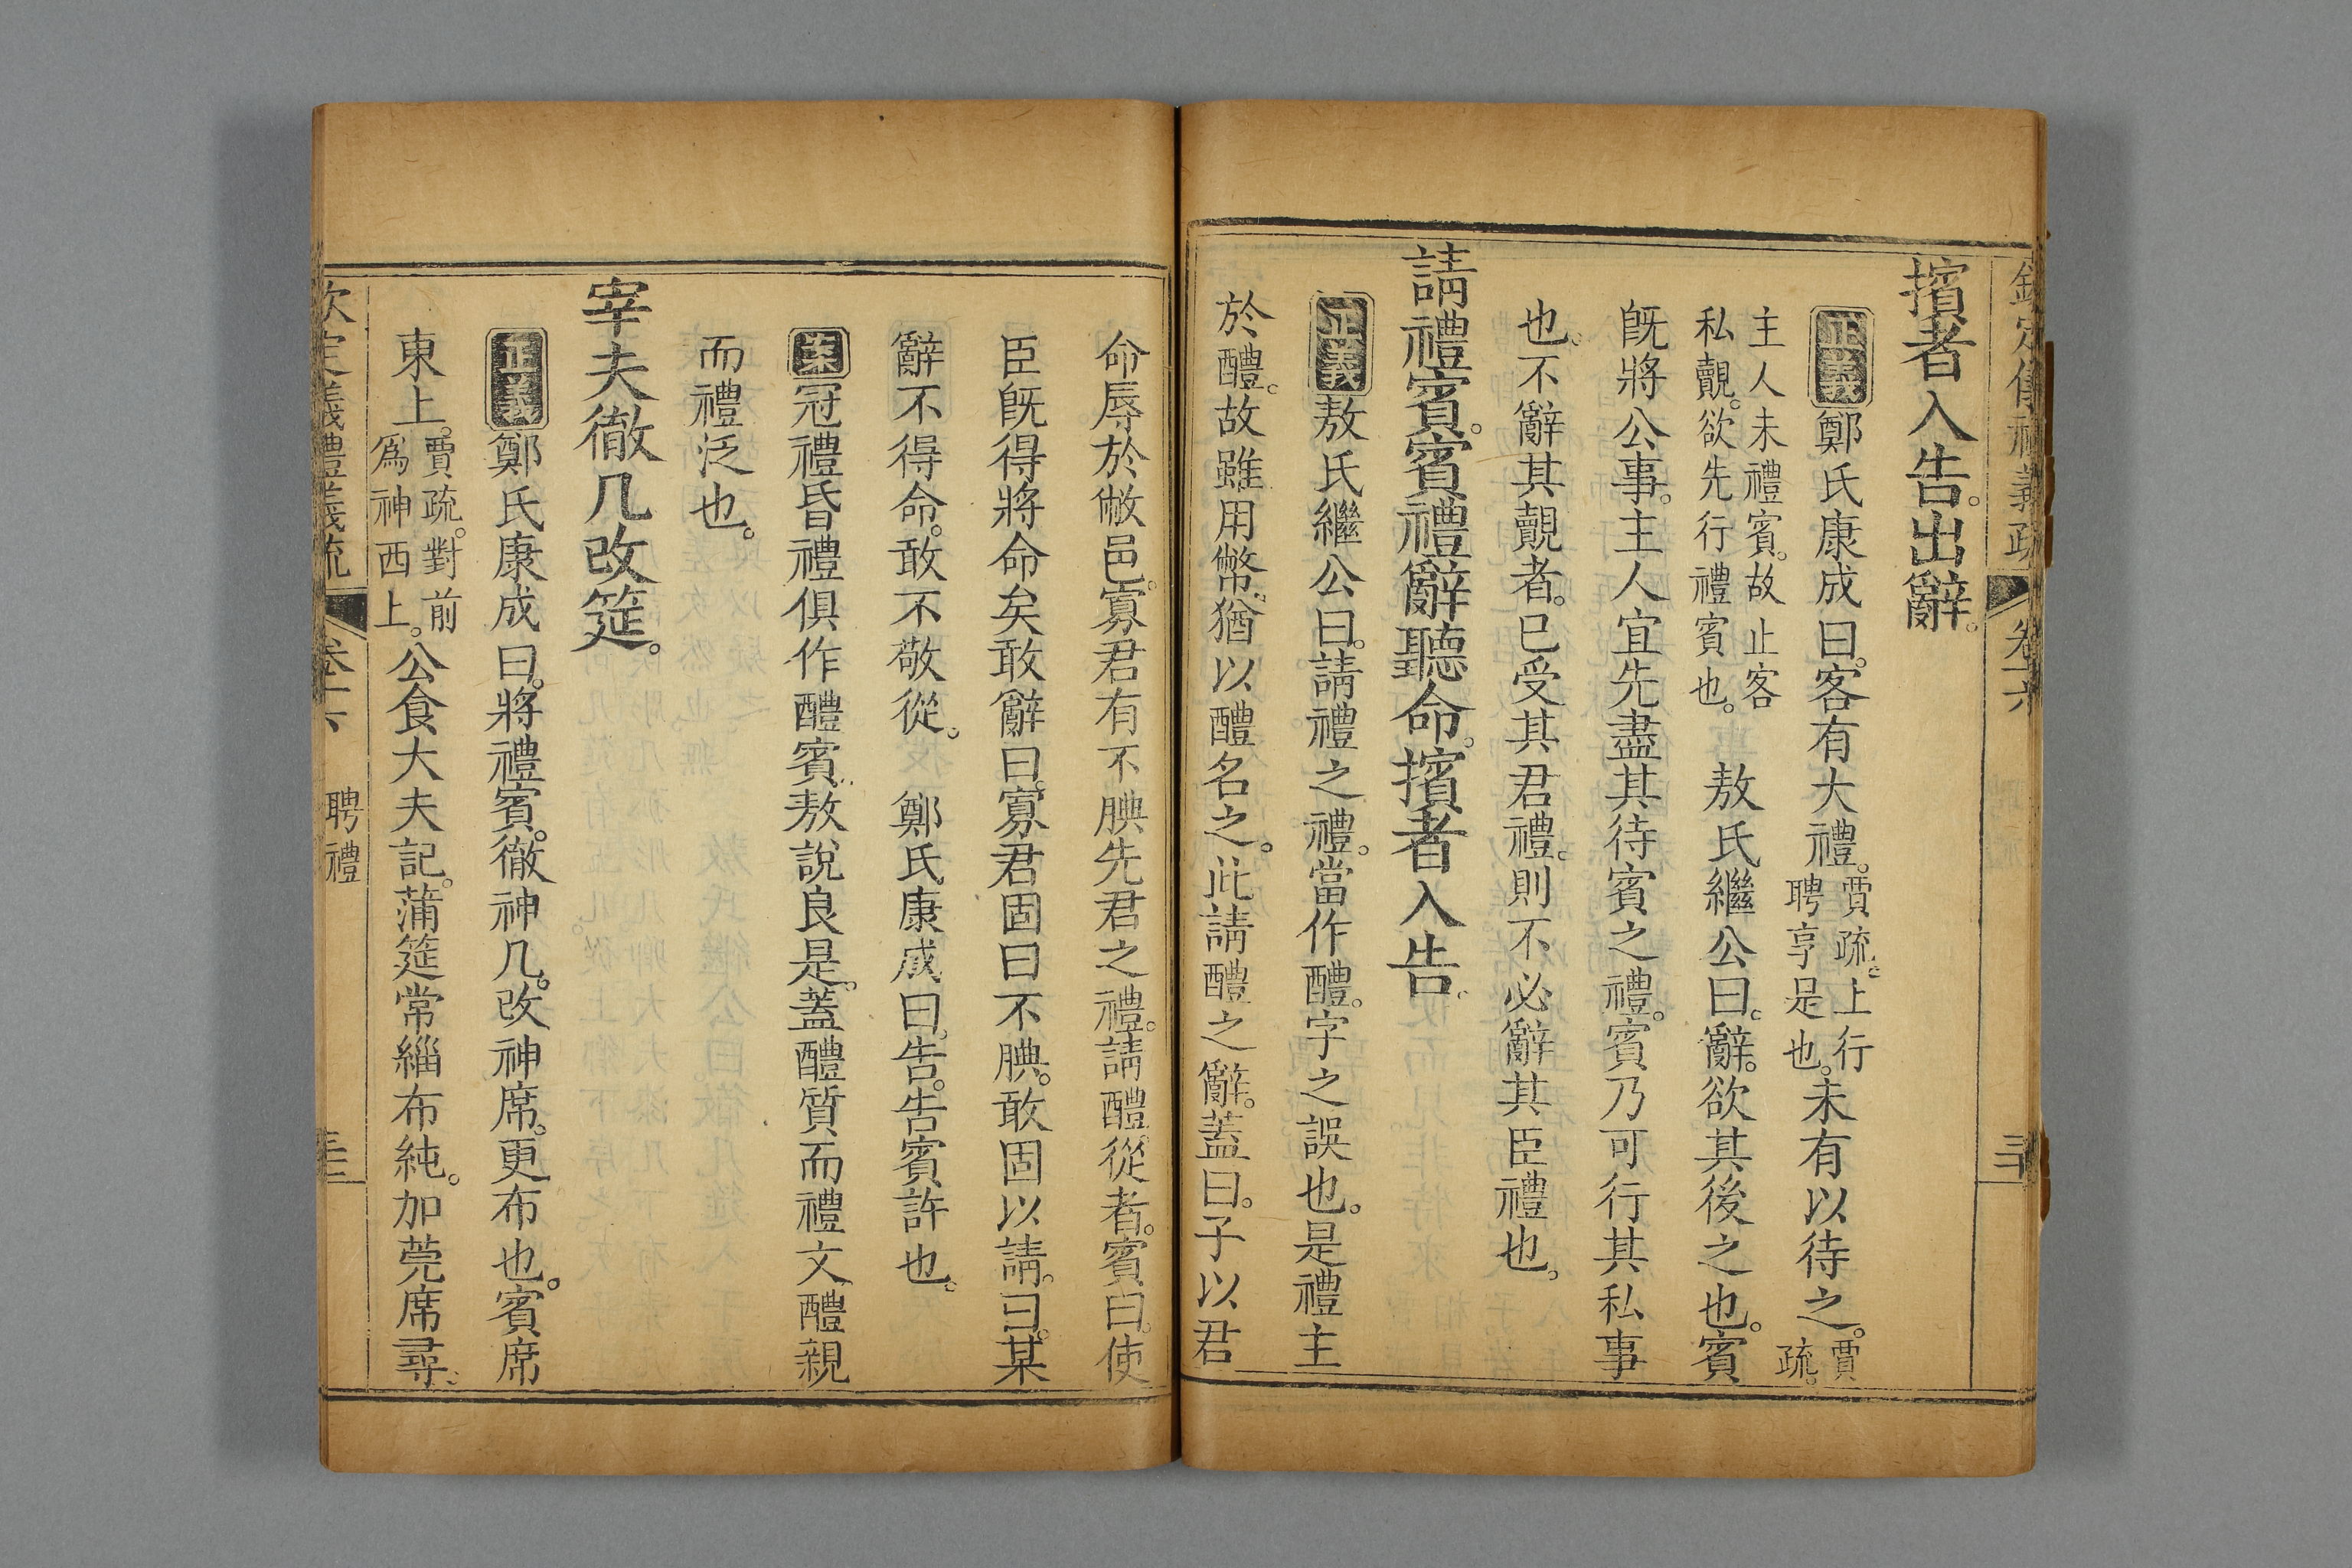 擯者入告。出辭。
正義鄭氏康成曰。客有大禮。賈疏。上行聘享是也。未有以待之。賈疏。
主人未禮賓。故止客私覿。欲先行禮賓也。敖氏繼公曰。辭。欲其後之也。賓
旣將公事。主人宜先盡其待賓之禮。賓乃可行其私事
也。不辭其覿者。已受其君禮。則不必辭其臣禮也。
請禮賓。賓禮辭聽命。擯者入告。
正義敖氏繼公曰。請禮之禮。當作醴。字之誤也。是禮主
於醴。故雖用幣。猶以醴名之。此請醴之辭。蓋曰。子以君
命辱於敝邑。寡君有不腆先君之禮。請醴從者。賓曰。使
臣旣得將命矣敢辭曰。寡君固曰不腆。敢固以請。曰。某
辭不得命。敢不敬從。 鄭氏康成曰。告。告賓許也。
案冠禮昏禮俱作醴賓。敖說良是。蓋醴質而禮文醴親
而禮泛也。
宰夫徹几改筵。
正義鄭氏康成曰。將禮賓。徹神几。改神席。更布也。賓席
東上。賈疏。對前爲神西上。公食大夫記。蒲筵常緇布純。加莞席尋。
欽定儀禮義疏 卷十六 聘禮